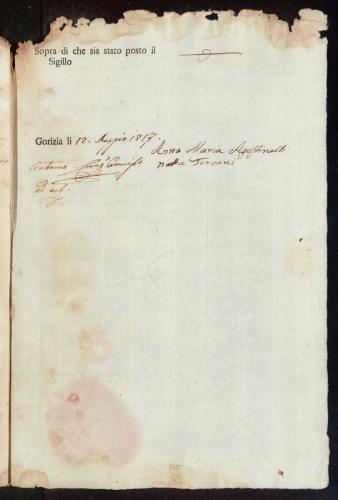 Sopra di che sia stato posto il
Sigillo
Gorizia li 12. Maggio 1817.
Anna Maria Agostinelli
nata Torcani
Antonio
ad act.